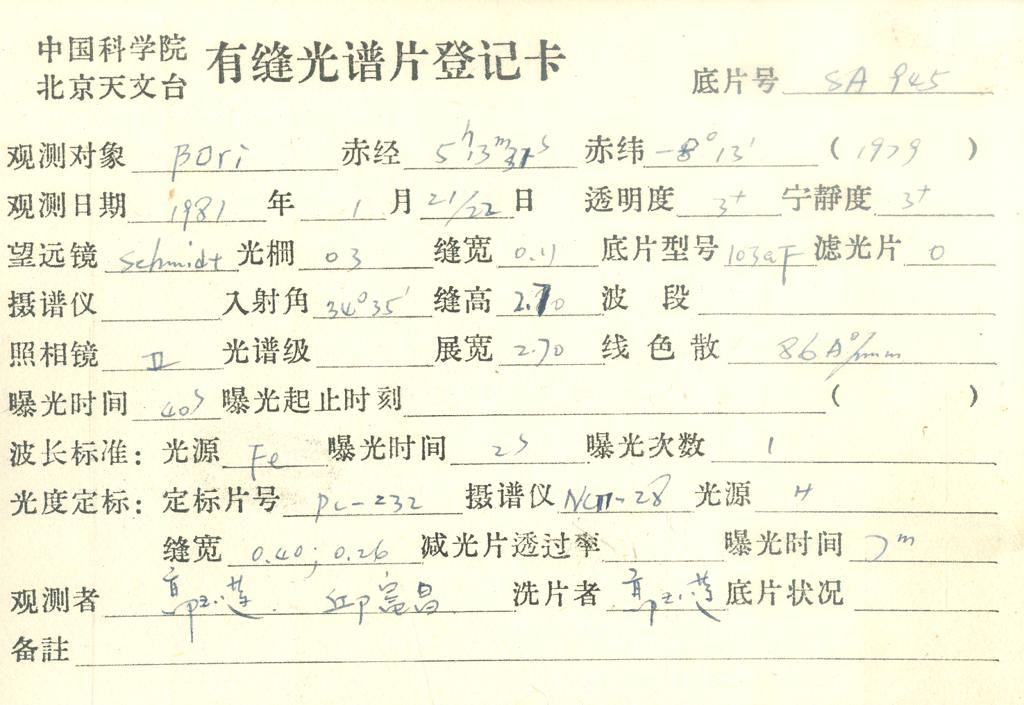 中国科学院
北京天文台
有缝光谱片登记卡
底片号 SA 945
观测对象 βOri 赤经 5h13m31s 赤纬 -8°13′ (1979)
观测日期 1981 年 1 月 21/22 日 透明度 3+ 宁静度 3+
望远镜 Schmidt 光栅 03 缝宽 0.11 底片型号 103aF 滤光片 0
摄谱仪 入射角 34°35′ 缝高 2.70 波段
照相镜 II 光谱级 展宽 2.70 线色散 86A°/mm
曝光时间 40s 曝光起止时刻 ( )
波长标准: 光源 Fe 曝光时间 2s 曝光次数 1
光度定标: 定标片号 Pc-232 摄谱仪 光源 H
缝宽 0.40; 0.26 减光片透过率 曝光时间 7m
观测者 邱富昌 洗片者 底片状况
备註